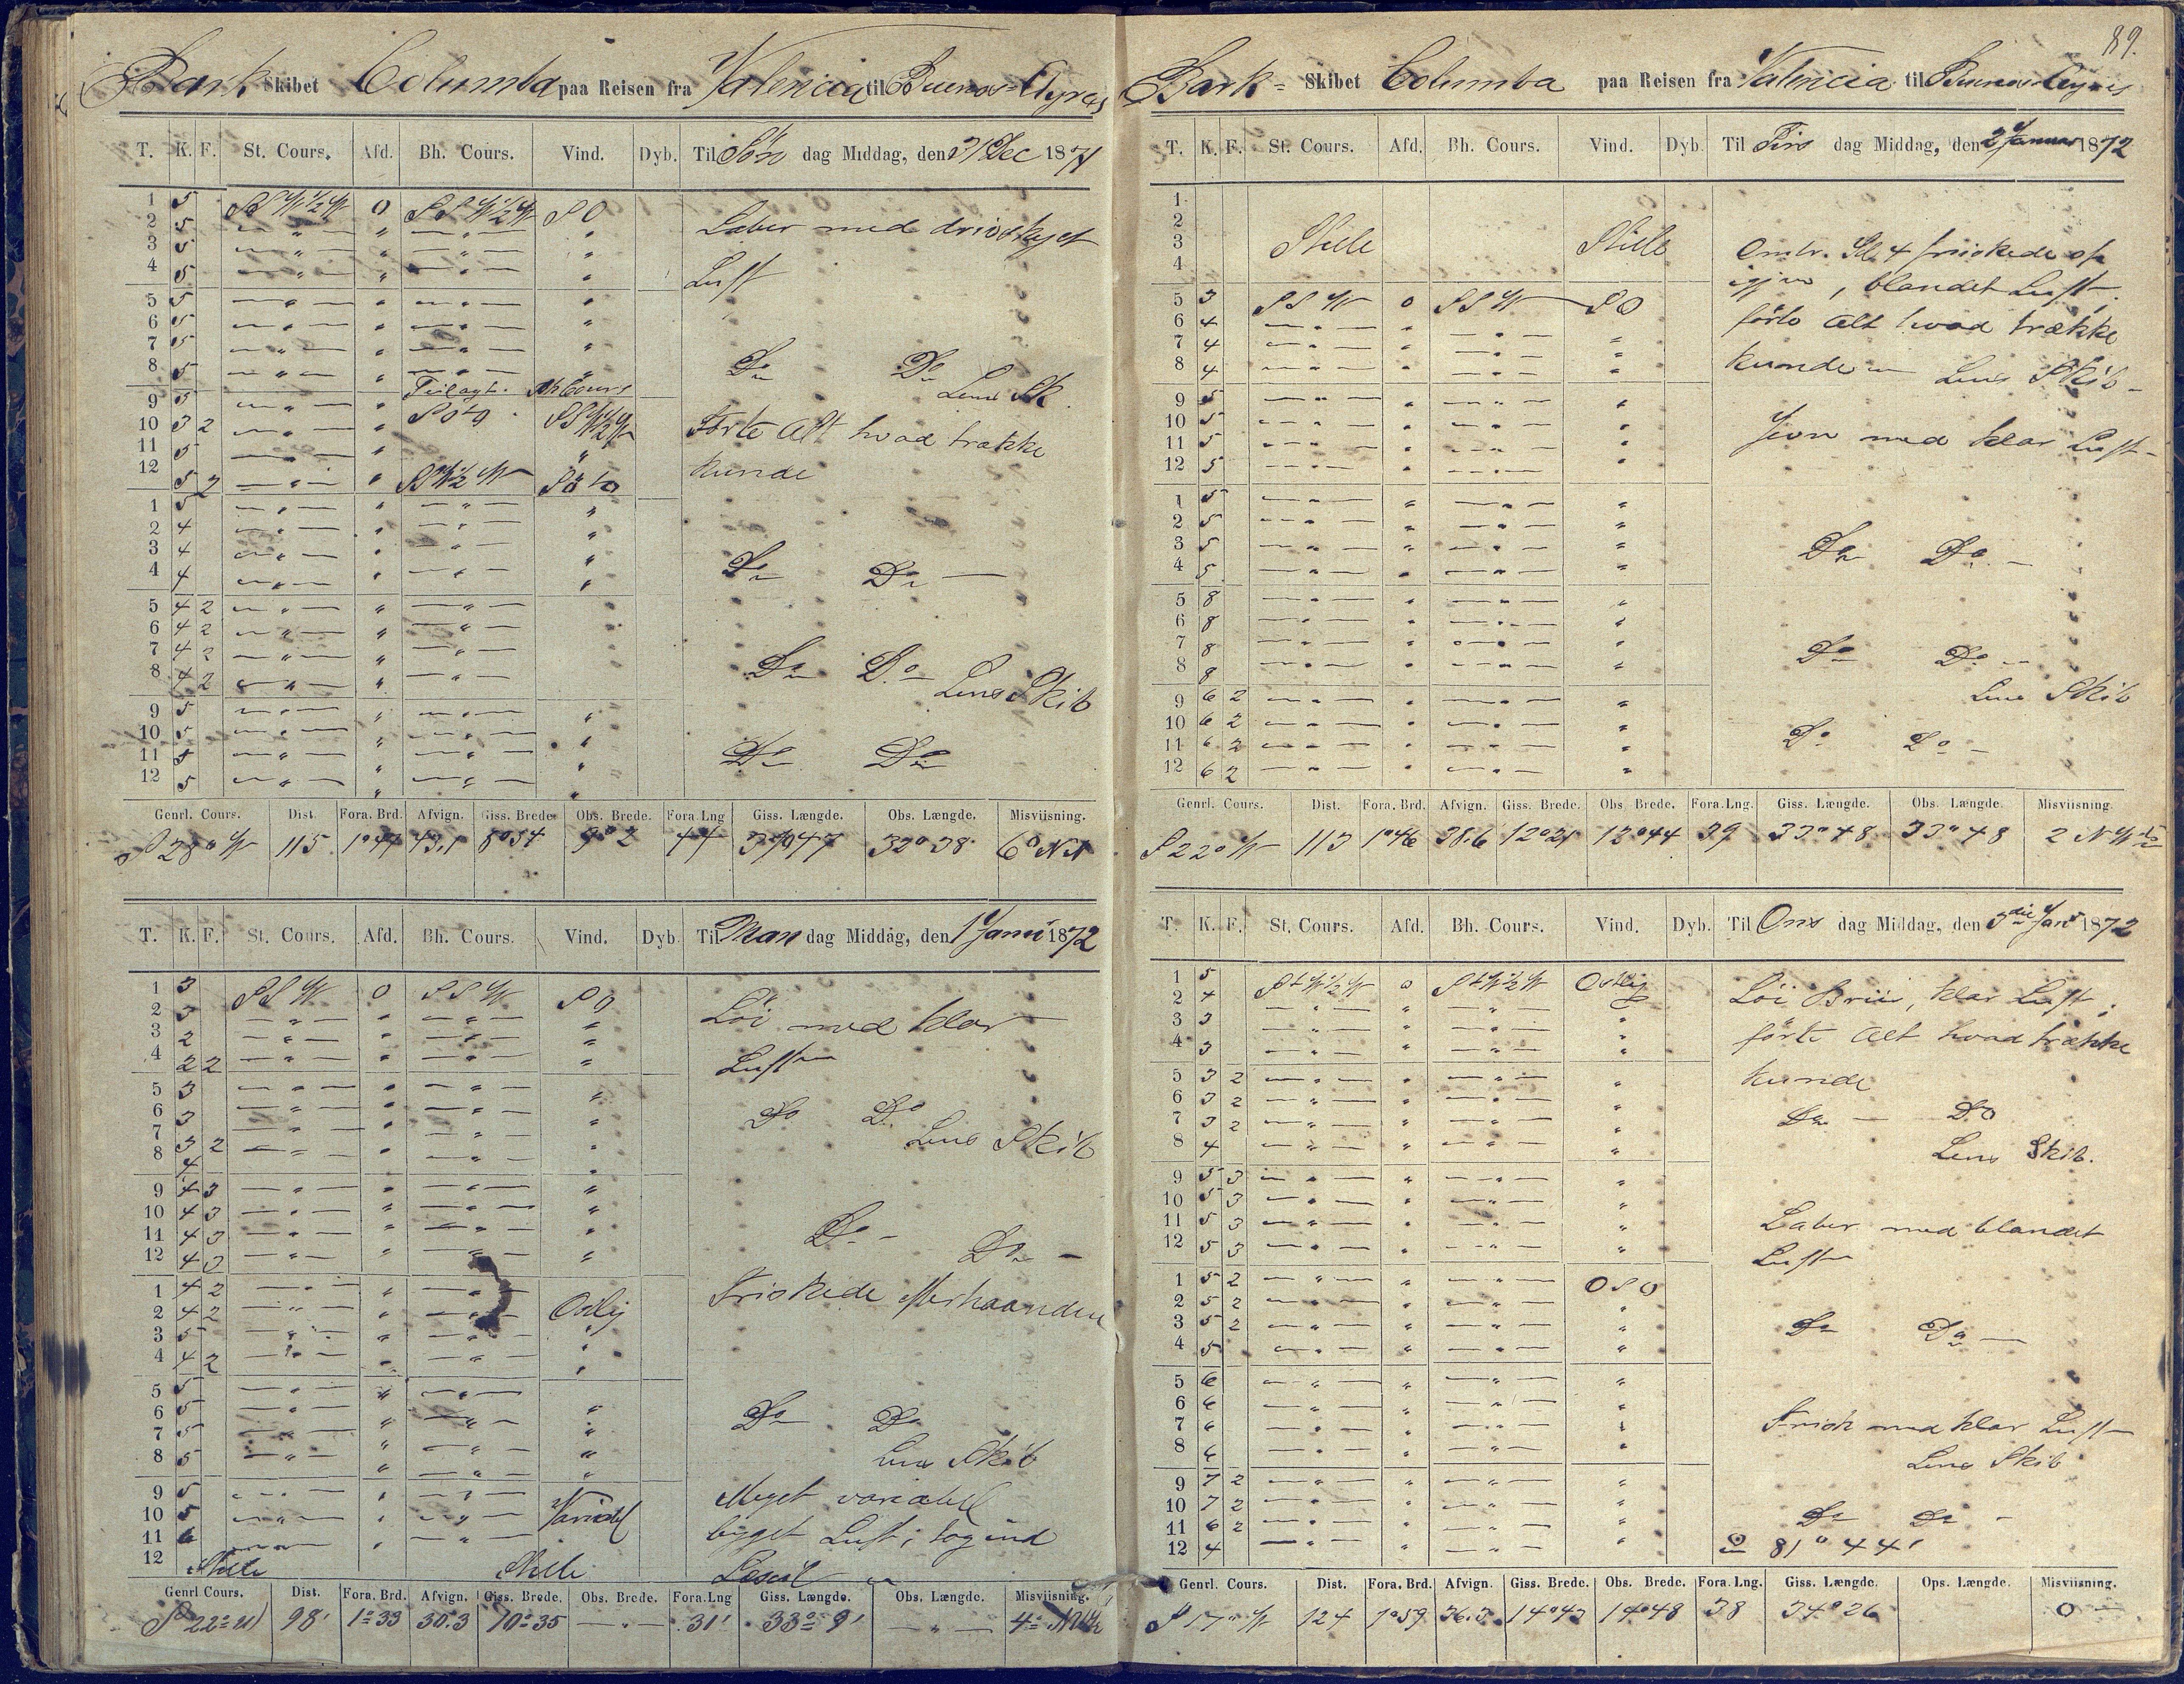 Bark Skibet Columba paa Reisen fra Valencia til Buenos-Ayres
T. K. F. St. Cours. Afd. Bh. Cours. Vind. Dyb. Til Søn dag Middag, den 31 Dec 1871
1 5 SSW½W 0 SSW½W SO
2 5 Laber med drivskyet
3 5
4 5 Luft
5 5
6 5
7 5
8 5 Do Do
Lens Sk.
9 5
10 3 2 Førte Alt hvad trække
11 5
12 5 2 kunde
1 5
2 4
3 4
4 4 Do Do
5 4 2
6 4 2
7 4 2
8 4 2 Do Do Lens Skib
9 5
10 5
11 5 Do Do
12 5
Genrl. Cours. Dist. Fora. Brd. Afvign. Giss. Brede. Obs. Brede. Fora. Lng Giss. Længde. Obs. Længde. Misviisning.
S 28° W 115 43,1 8°54 9°2 44 32°38
T. K. F. St. Cours. Afd. Bh. Cours. Vind. Dyb. Til Man dag Middag, den 1 Janu 1872
1 3 SSW 0 SSW SO
2 3 Løi med klar
3 2
4 2 2 Luft
5 3
6 3 Do Do
7 3 2 Lens Skib
8 4
9 4 3
10 4 3
11 4 3 Do Do
12 4 3
1 4 2 Friskede efterhaanden
2 4 2 Ostlig
3 5
4 4 2
5 5
6 5 Do Do
7 5
8 5 Lens Skib
9 5 Meget variabel
10 5 Variabel
11 6 byget Luft; tog ind
12 Stille Stille
Genrl Cours. Dist. Fora. Brd. Afvign. Giss. Brede. Obs. Brede. Fora. Lng Giss. Længde. Obs. Længde. Misviisning.
S 22° W 98' 1°33 30.3 10°35 — " — 31' 33° 9' — " —
89.
Bark- Skibet Columba paa Reisen fra Valencia til Buenos-Ayres
T. K. F. St. Cours. Afd. Bh. Cours. Vind. Dyb. Til Tirs dag Middag, den 2 Januar 1872
1
2
3 Stille Stille Omtr. Kl. 4 friskede op
4 igjen, blandet Luft.
5 3 SSW 0 SSW SO
6 4 førte Alt hvad trække
7 4
8 4 kunde Lens Skib
9 5
10 5
11 5 Jevn med klar Luft
12 5
1 5
2 5
3 5 Do Do
4 5
5 8
6 8
7 8 Do Do
8 8
9 6 2 Lens Skib
10 6 2
11 6 2 Do Do
12 6 2
Genrl. Cours. Dist. Fora. Brd. Afvign. Giss. Brede. Obs. Brede. Fora. Lng. Giss. Længde. Obs. Længde. Misviisning.
S 22° W 113 1°46 38.6 12°21 12°44 39 33°48 33°48
T. K. F. St. Cours. Afd. Bh. Cours. Vind. Dyb. Til Ons dag Middag, den 3die Jan 1872
1 5 StW½W 0 StW½W Ostlig
2 4 Løi Briis, klar Luft;
3 3
4 3 førte Alt hvad trække
5 3 2 kunde
6 3 2 Do Do
7 3 2
8 4 Lens Skib.
9 5 3
10 5 3
11 5 3 Laber med blandet
12 5 3 Luft
1 5 2 OSO
2 5 2
3 5 2 Do Do
4 5
5 6
6 6
7 6 Frisk med klar Luft
8 6 Lens Skib
9 7 2
10 7 2
11 6 2 Do Do
12 4 81° 44'
Genrl. Cours. Dist. Fora. Brd. Afvign. Giss. Brede. Obs. Brede. Fora. Lng. Giss. Længde. Ops. Længde. Misviisning.
S 17° W 124 1°59 36.3 14°43 14°48 38 34°26 0